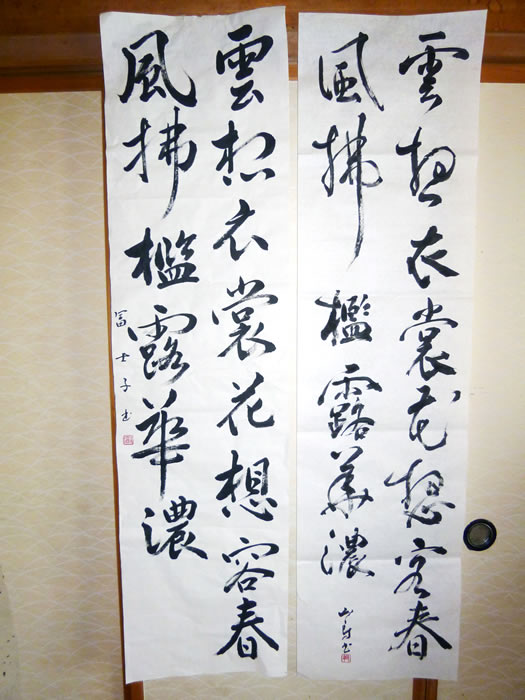 雲想衣裳花想容春
風拂檻露華濃
雲想衣裳花想容春
風拂檻露華濃
富士子書